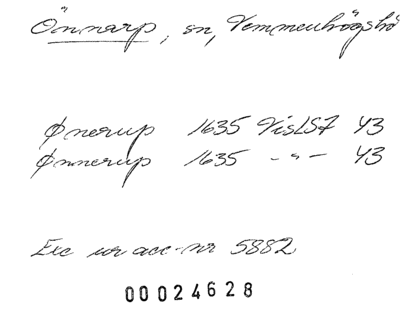 Önnarp, sn, Vemmenhögs hd
Ønerup 1635 VisLSt 43
Ønnerup 1635 - " - 43
Exc ur acc-nr 5882
00024628